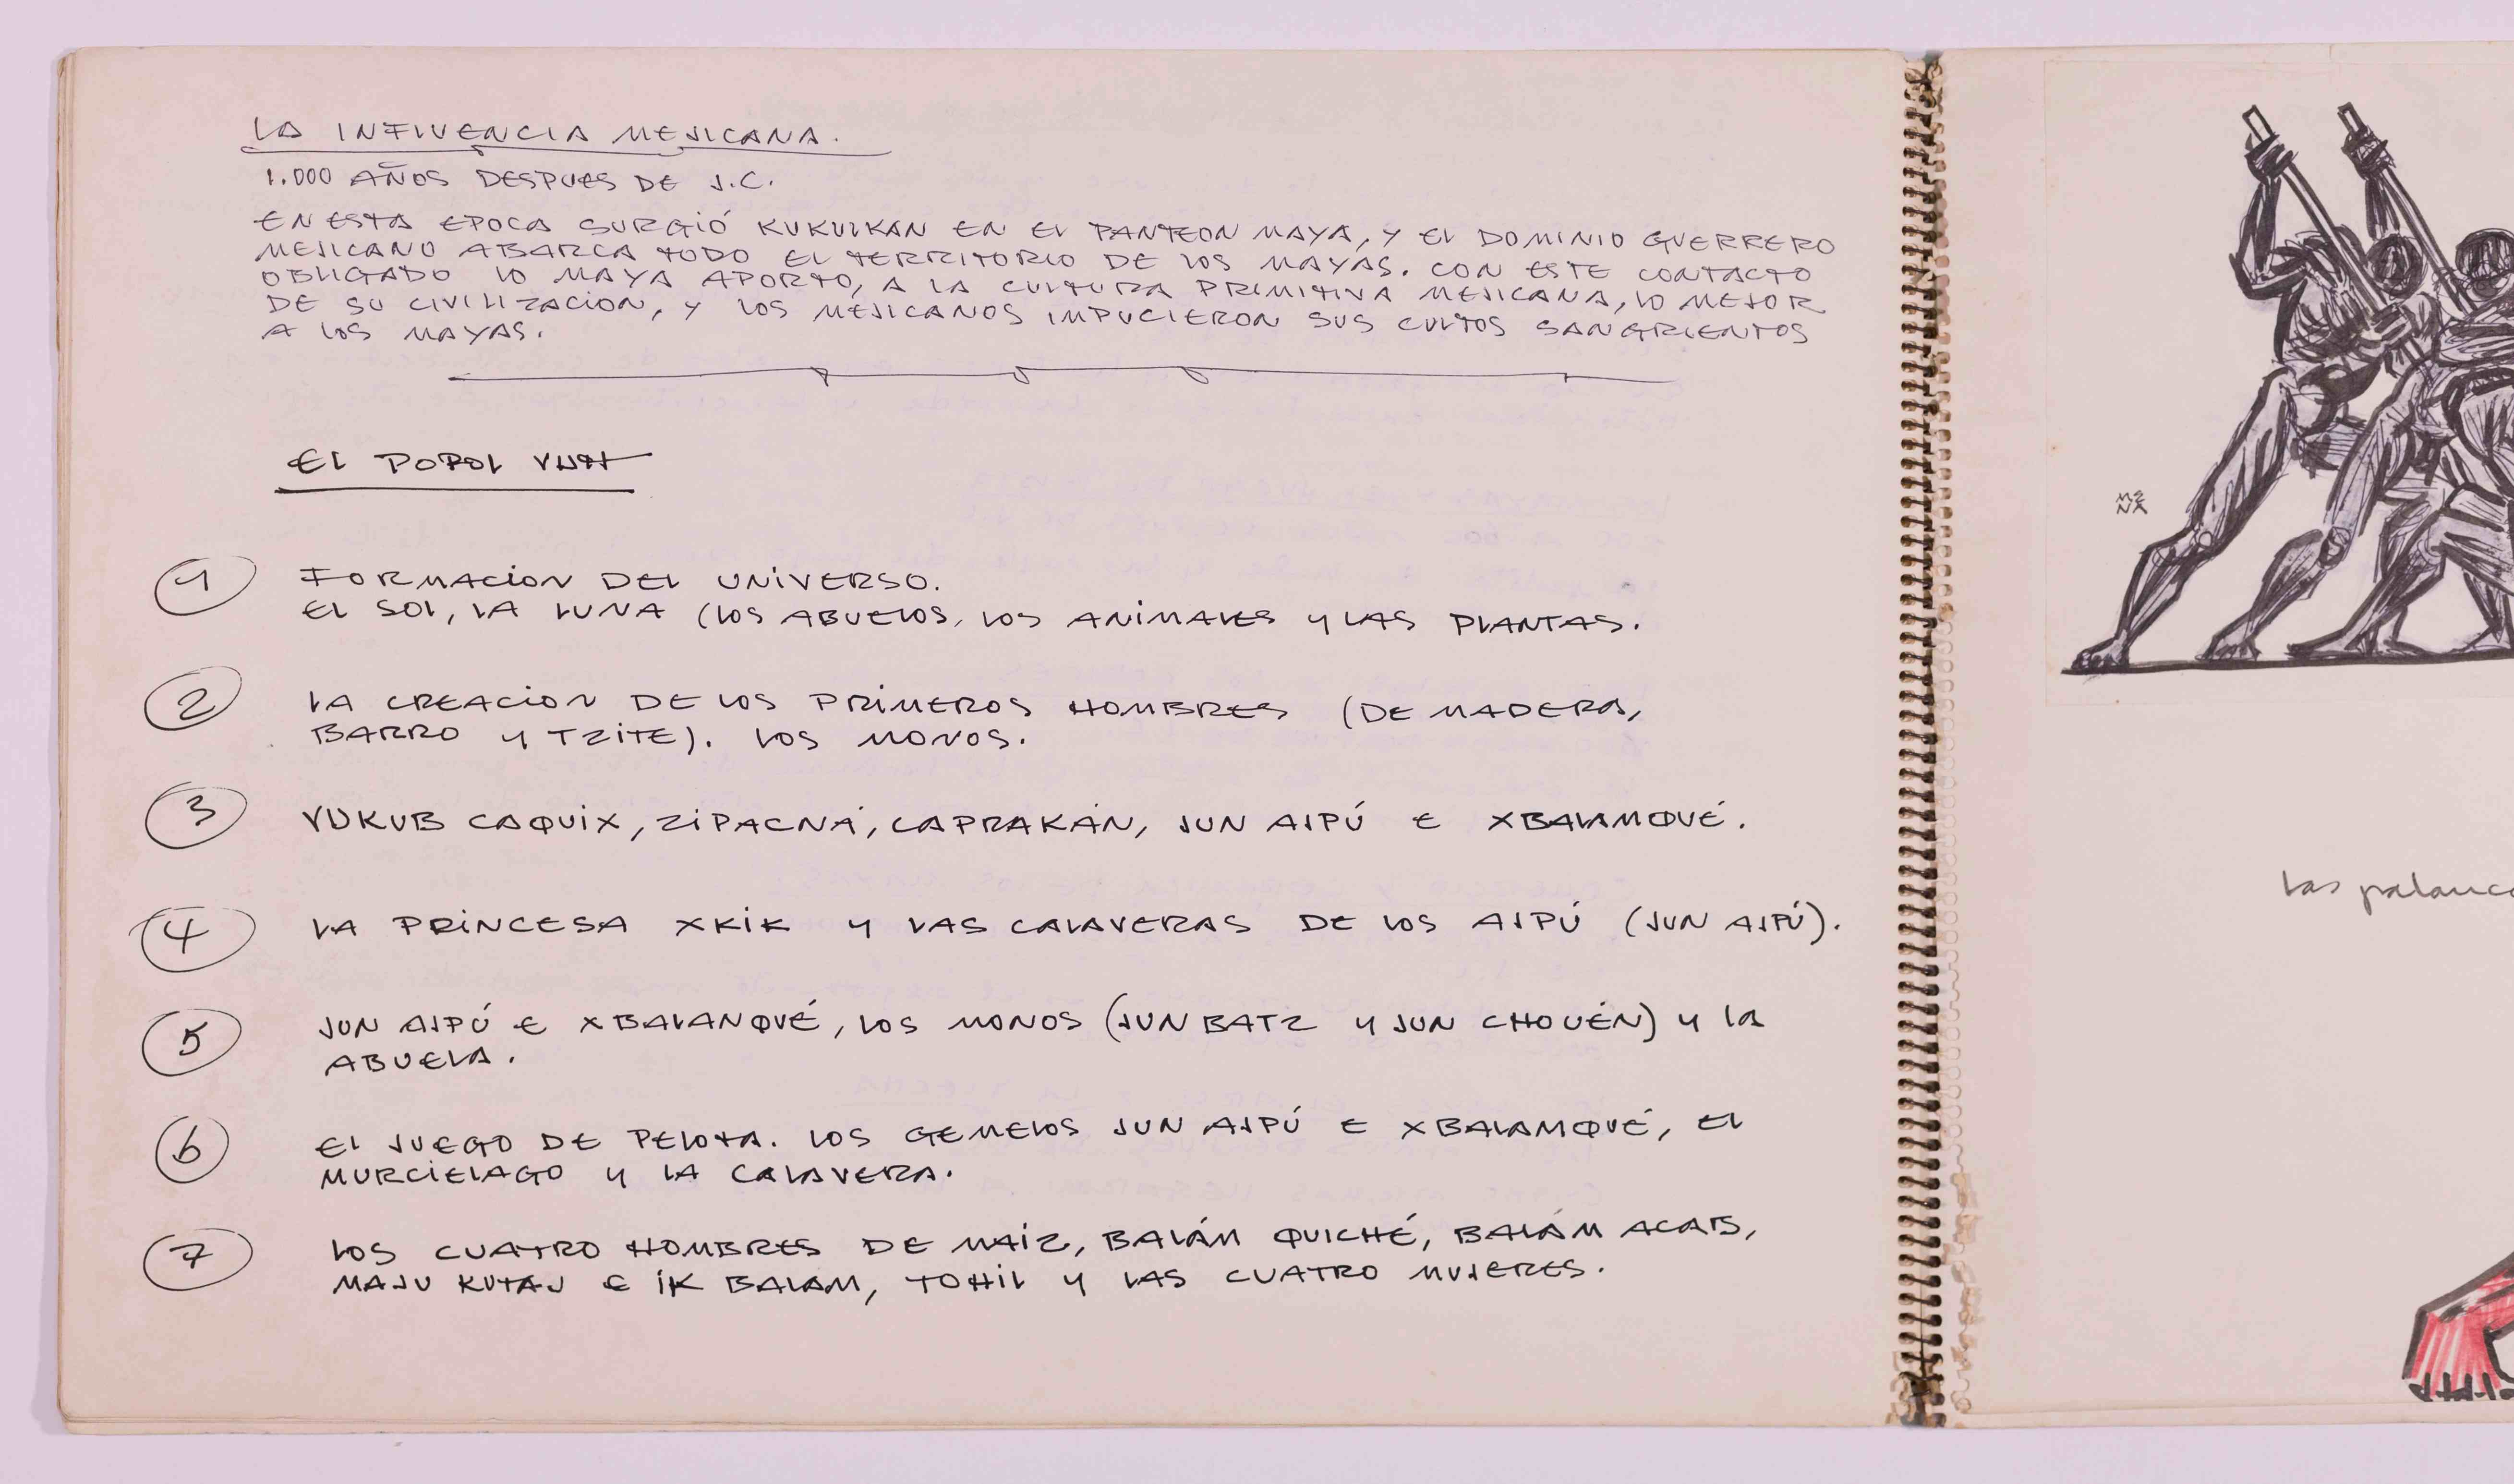 LA INFLUENCIA MEJICANA.
1.000 AÑOS DESPUES DE J.C.
EN ESTA EPOCA SURGIÓ KUKULKAN EN EL PANTEON MAYA, Y EL DOMINIO GUERRERO
MEJICANO ABARCA TODO EL TERRITORIO DE LOS MAYAS. CON ESTE CONTACTO
OBLIGADO LO MAYA APORTO, A LA CULTURA PRIMITIVA MEJICANA, LO MEJOR
DE SU CIVILIZACION, Y LOS MEJICANOS IMPUCIERON SUS CULTOS SANGRIENTOS
A LOS MAYAS.
EL POPOL VUH
1 FORMACION DEL UNIVERSO.
EL SOL, LA LUNA (LOS ABUELOS, LOS ANIMALES Y LAS PLANTAS.
2 LA CREACION DE LOS PRIMEROS HOMBRES (DE MADERA,
BARRO Y TZITE). LOS MONOS.
3 VUKUB CAQUIX, ZIPACNÁ, CAPRAKÁN, JUN AJPÚ E XBALAMQUÉ.
4 LA PRINCESA XKIK Y LAS CALAVERAS DE LOS AJPÚ (JUN AJPÚ).
5 JUN AJPÚ E XBALANQUÉ, LOS MONOS (JUN BATZ Y JUN CHOUÉN) Y LA
ABUELA.
6 EL JUEGO DE PELOTA. LOS GEMELOS JUN AJPÚ E XBALAMQUÉ, EL
MURCIELAGO Y LA CALAVERA.
7 LOS CUATRO HOMBRES DE MAÍZ, BALÁM QUICHÉ, BALÁM ACAB,
MAJU KUTAJ E IK BALAM, TOHIL Y LAS CUATRO MUJERES.
Las palanc